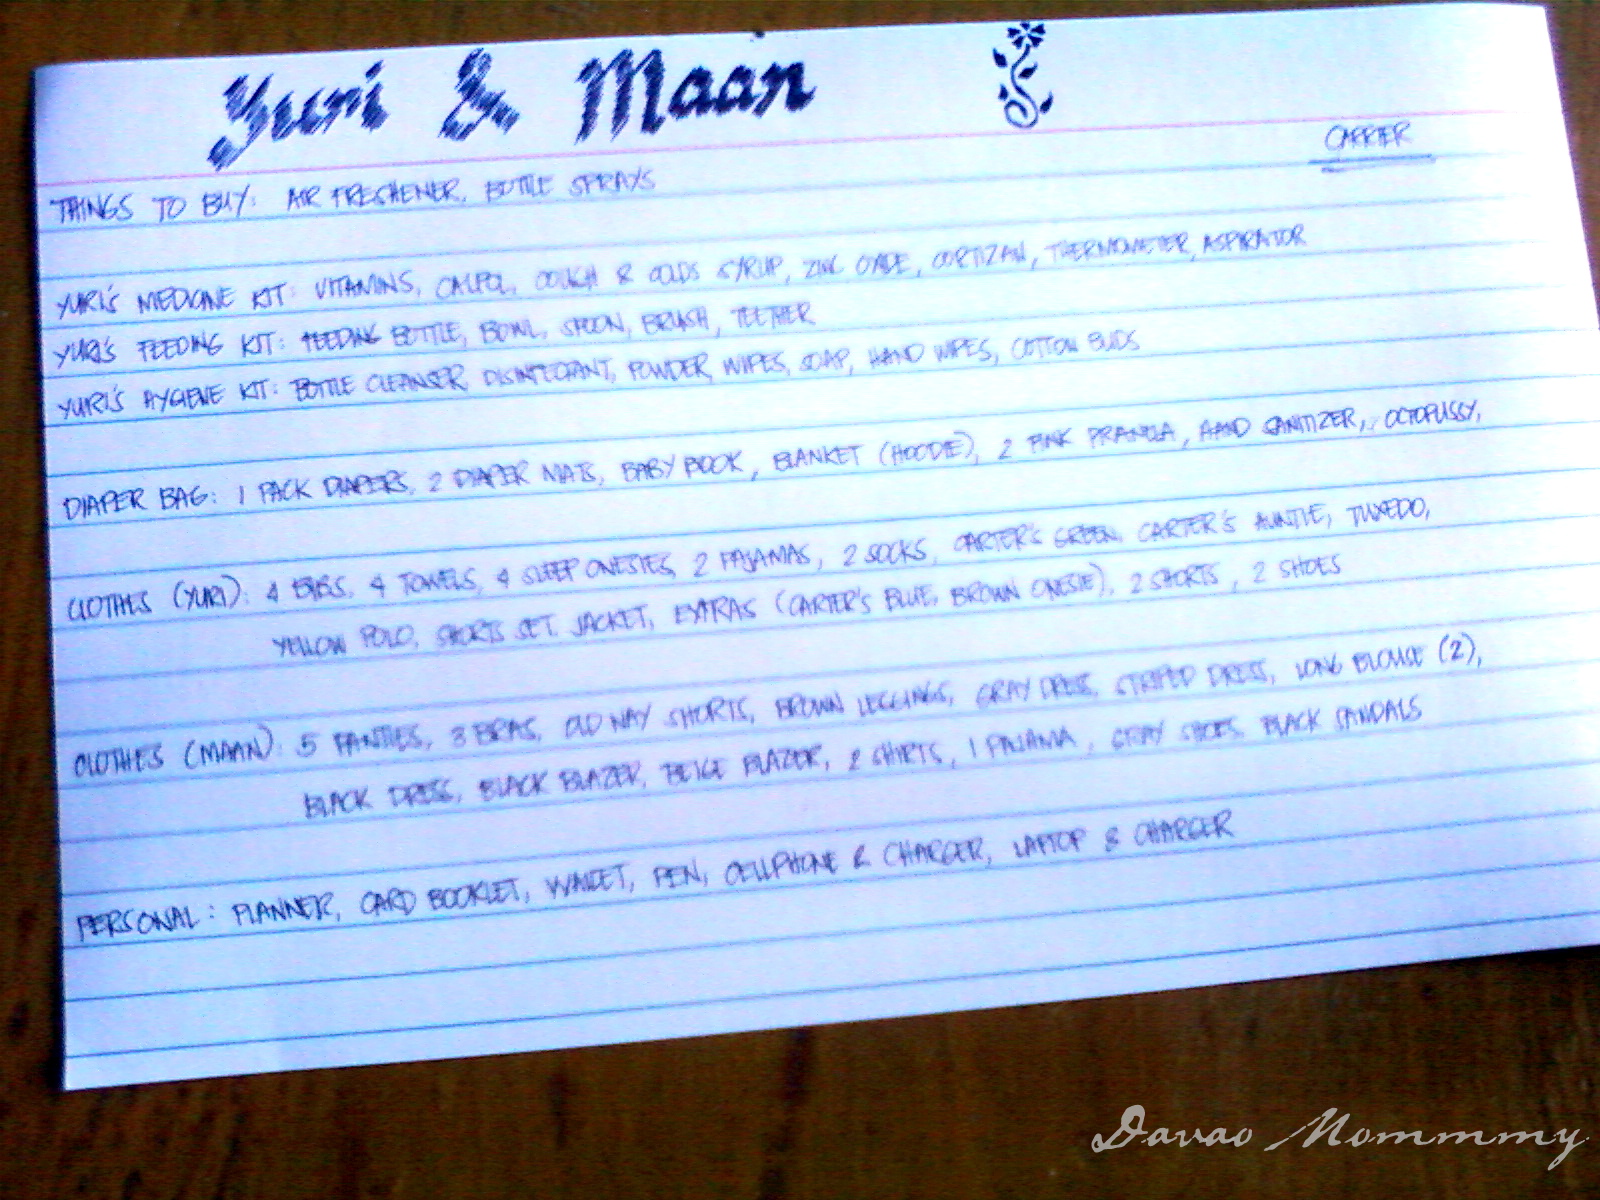 Yuri & Maan
CARRIER
THINGS TO BUY: AIR FRESHENER, BOTTLE SPRAYS
YURI'S MEDICINE KIT: VITAMINS, CALPOL, COUGH & COLDS SYRUP, ZINC OXIDE, CORTIZAN, THERMOMETER, ASPIRATOR
YURI'S FEEDING KIT: FEEDING BOTTLE, BOWL, SPOON, BRUSH, TEETHER
YURI'S HYGIENE KIT: BOTTLE CLEANSER, DISINFECTANT, POWDER, WIPES, SOAP, HAND WIPES, COTTON BUDS
DIAPER BAG: 1 PACK DIAPERS, 2 DIAPER MATS, BABY BOOK, BLANKET (HOODIE), 2 PINK PRANELA, HAND SANITIZER, OCTOPUSSY,
CLOTHES (YURI): 4 BIBS, 4 TOWELS, 4 SLEEP ONESIES, 2 PAJAMAS, 2 SOCKS, CARTER'S GREEN, CARTER'S AUNTIE, TUXEDO,
YELLOW POLO, SHORTS SET, JACKET, EXTRAS (CARTER'S BLUE, BROWN ONESIE), 2 SHORTS, 2 SHOES
CLOTHES (MAAN): 5 PANTIES, 3 BRAS, OLD NAVY SHORTS, BROWN LEGGINGS, GRAY DRESS, STRIPED DRESS, LONG BLOUSE (2),
BLACK DRESS, BLACK BLAZER, BEIGE BLAZER, 2 SHIRTS, 1 PAJAMA, GRAY SHOES, BLACK SANDALS
PERSONAL: PLANNER, CARD BOOKLET, WALLET, PEN, CELLPHONE & CHARGER, LAPTOP & CHARGER
Davao Mommmy